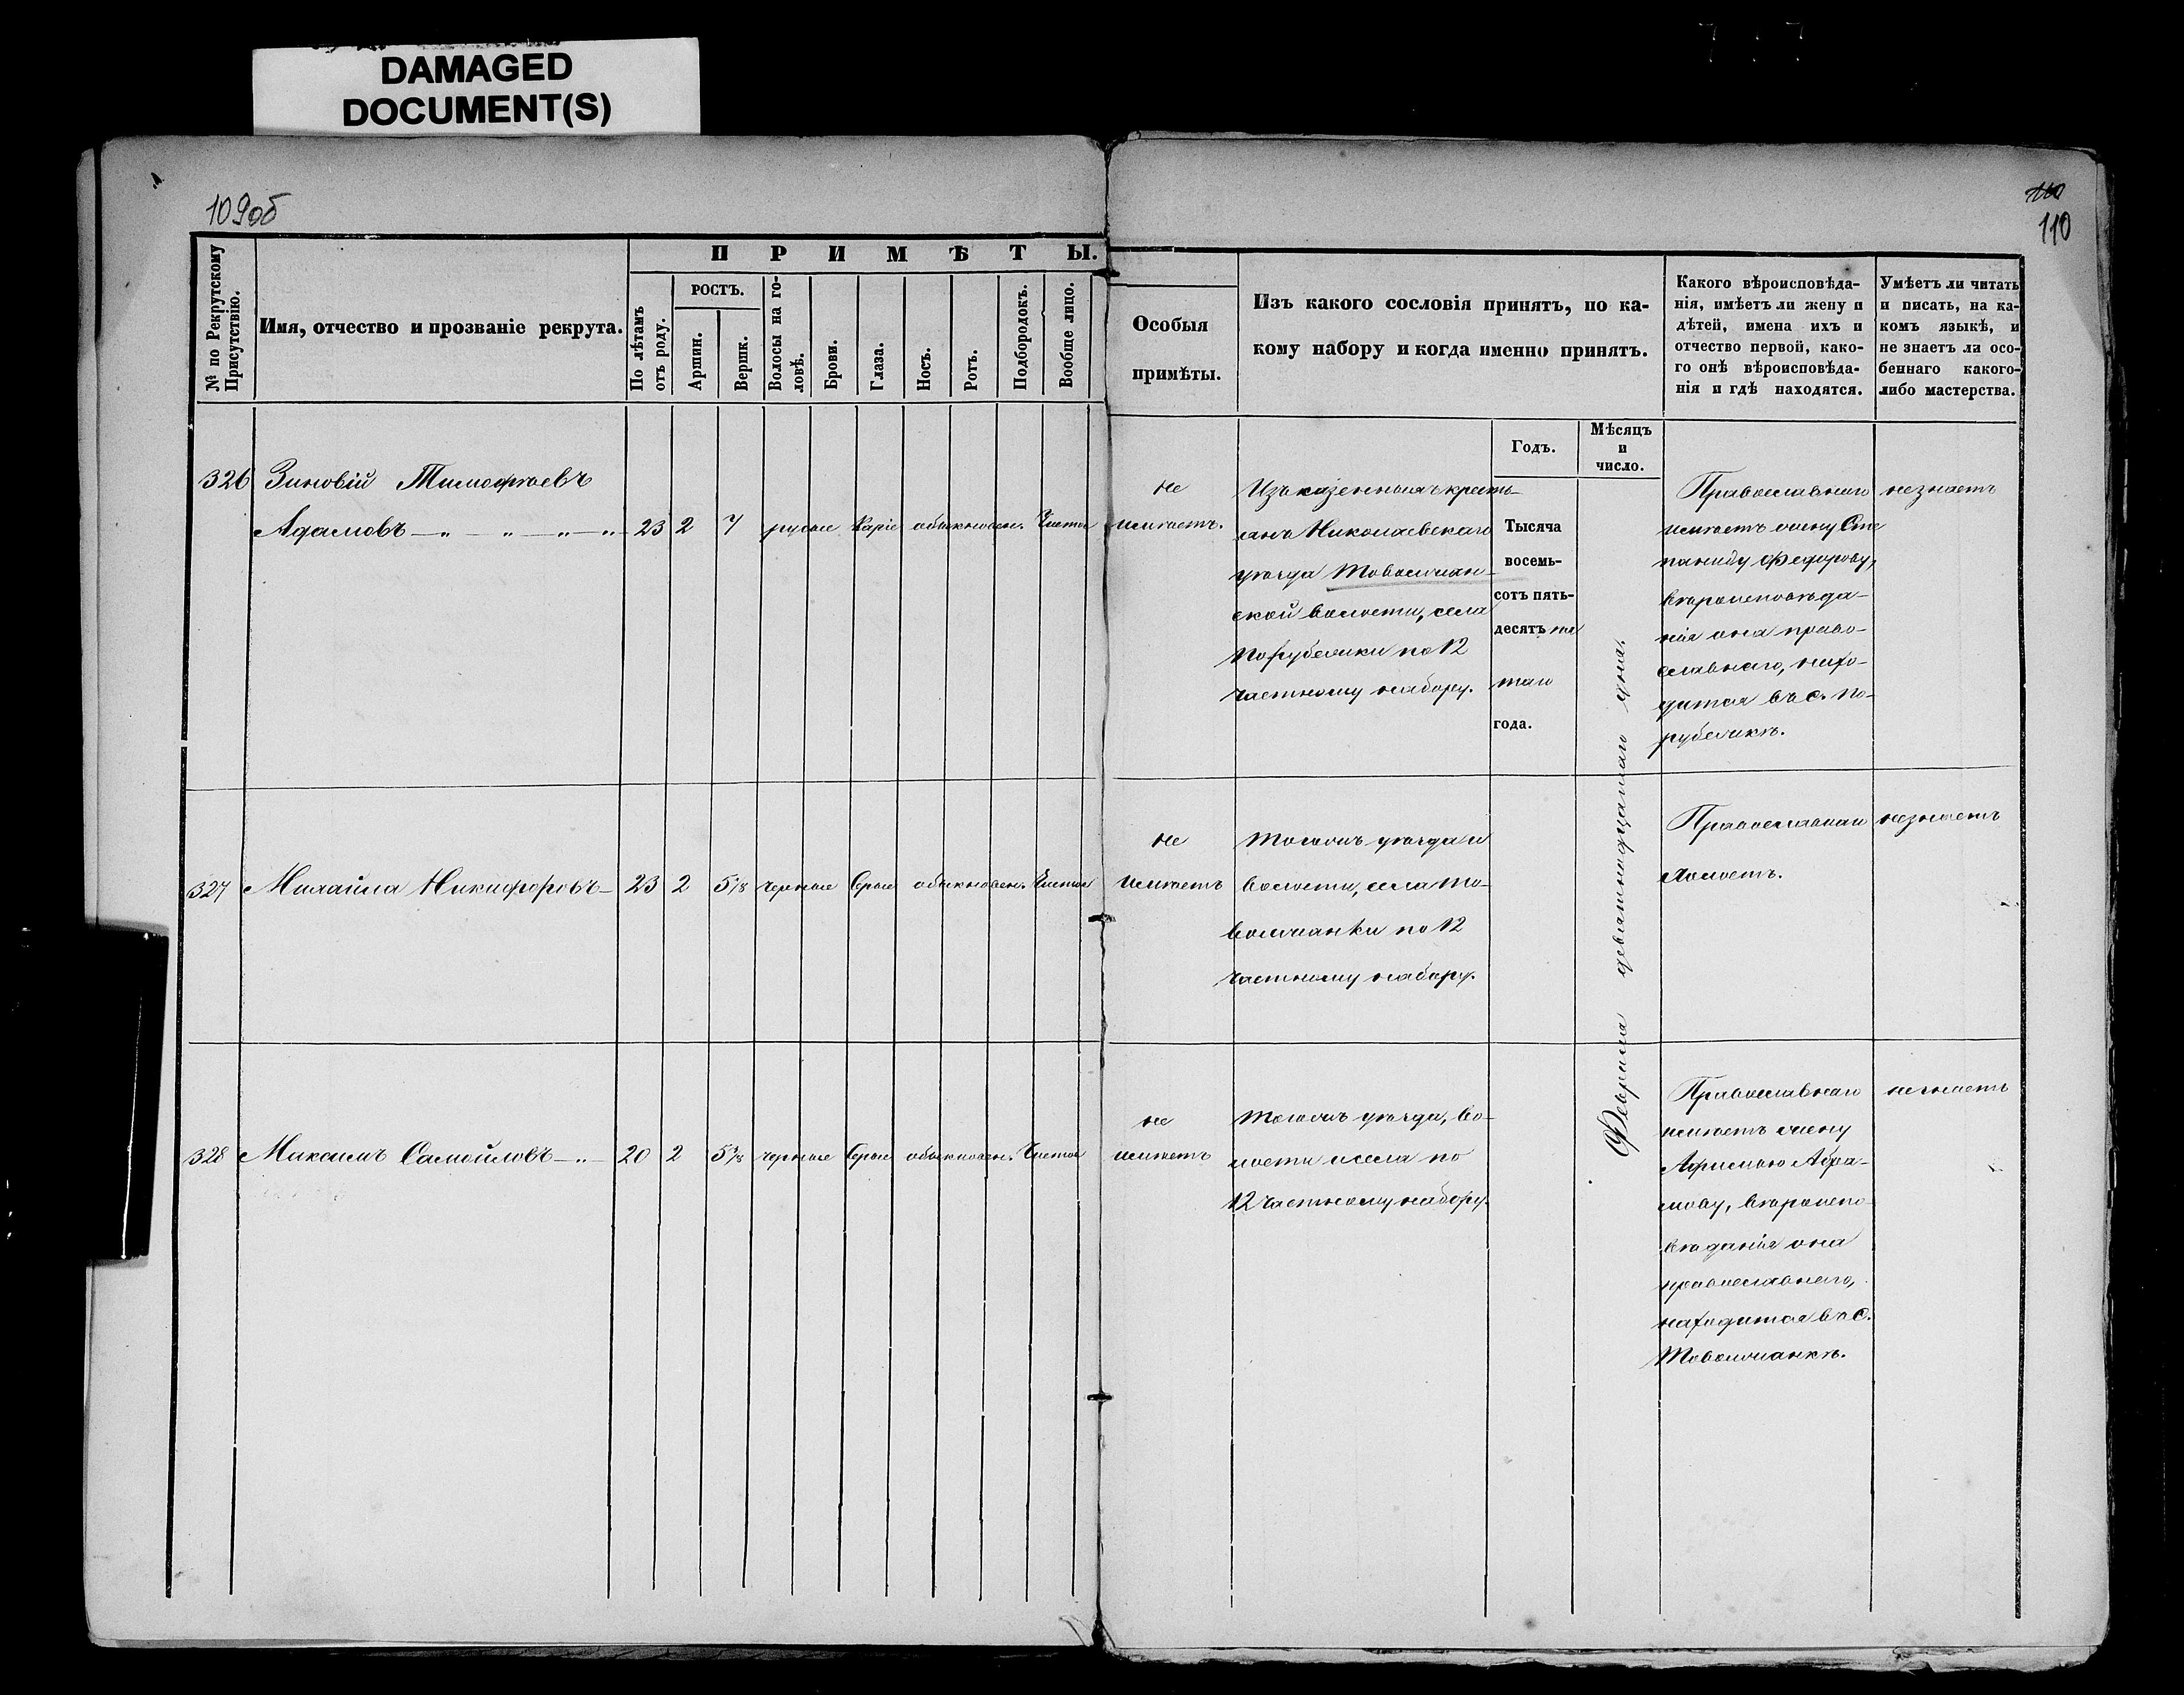 DAMAGED
DOCUMENT(S)
109об
110
110
П Р И М Ѣ Т Ы.
№ по Рекрутскому
Присутствію.
Имя, отчество и прозваніе рекрута.
По лѣтамъ
отъ роду.
РОСТЪ.
Аршин.
Вершк.
Волосы на го-
ловѣ.
Брови.
Глаза.
Носъ.
Ротъ.
Подбородокъ.
Вообще лицо.
Особыя
примѣты.
Изъ какого сословія принятъ, по ка-
кому набору и когда именно принятъ.
Какого вѣроисповѣда-
нія, имѣетъ ли жену и
дѣтей, имена ихъ и
отчество первой, како-
го онѣ вѣроисповѣда-
нія и гдѣ находятся.
Умѣетъ ли читать
и писать, на ка-
комъ языкѣ, и
не знаетъ ли осо-
беннаго какого-
либо мастерства.
Годъ.
Мѣсяцъ
и
число.
326 Зиновій Тимофѣевъ
Адамовъ — „ — „ — „ — „ 23 2 7 русые Каріе обыкновен. Чистое
не
имѣетъ.
Изъ казенныхъ кресть-
янъ Николаевскаго
уѣзда Товолжан-
ской волости, села
Порубежки по 12
частному набору.
Тысяча
восемь-
сотъ пять-
десятъ пя
таго
года.
Февраля девятнадцатаго дня.
Православнаго
имѣетъ жену Сте
паниду Федорову,
вѣроисповѣда-
нія она право-
славнаго, нахо-
дится въ с. По-
рубежкѣ.
незнаетъ
327 Михайла Никифоровъ — 23 2 5 1/8 черные Серые обыкновен. Чистое
не
имѣетъ
Тогожъ уѣзда и
волости, села То-
волжанки по 12
частному набору.
Православнаго
холостъ.
незнаетъ
328 Максимъ Самойловъ — „ — 20 2 5 3/8 черные Серые обыкновен. Чистое
не
имѣетъ
Тогожъ уѣзда, во-
лости и села по
12 частному набору.
Православнаго
имѣетъ жену
Афимью Абра-
мову, вѣроиспо-
вѣданія она
православнаго,
находится въ с.
Товолжанкѣ.
незнаетъ